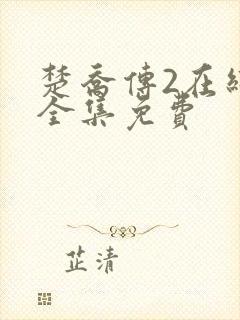 楚喬傳2在線
全集免費
芷清